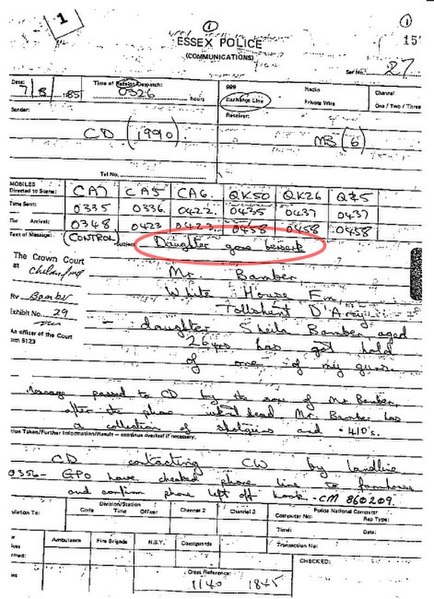 1
①
①
ESSEX POLICE
(COMMUNICATIONS)
15
Ser No. 27
Date: 7/8/85
Time of Receipt/Despatch: 0326 hours
999
Exchange Line
Radio
Private Wire
Channel
One / Two / Three
Sender:
CD (1990)
Receiver:
MB (6)
Tel No.
MOBILES Directed to Scene: CA7 CA5 CA6 QK50 QK26 Q75
Time Sent: 0335 0336 0422 0435 0437 0437
Arrival: 0348 0423 0423 0458 0458 0458
Text of Message: (CONTROL) Daughter gone berserk
The Crown Court
at Chelmsford
Mr Bamber
White House Fm
Rv Bamber
Tolleshunt D'Arcy
Exhibit No. 29
- daughter Sheila Bamber aged
An officer of the Court
26 yrs has got hold
with 5123
of one of my guns.
Message passed to CD by the son of Mr Bamber
after the phone went dead Mr Bamber has
a collection of shotguns and .410's.
Action Taken/Further Information/Result – continue overleaf if necessary.
CD contacting CW by landline
0356- GPO have checked phone line to farmhouse
and confirm phone left off hook. - CM 860209.
Division/Station
Code Time Officer Channel 2 Channel 3
Police National Computer
Computer No: Rep Type:
Time: Date:
Transaction No:
Ambulance Fire Brigade N.S.Y. Coastguards
CHECKED:
Cross Reference
1140 1845